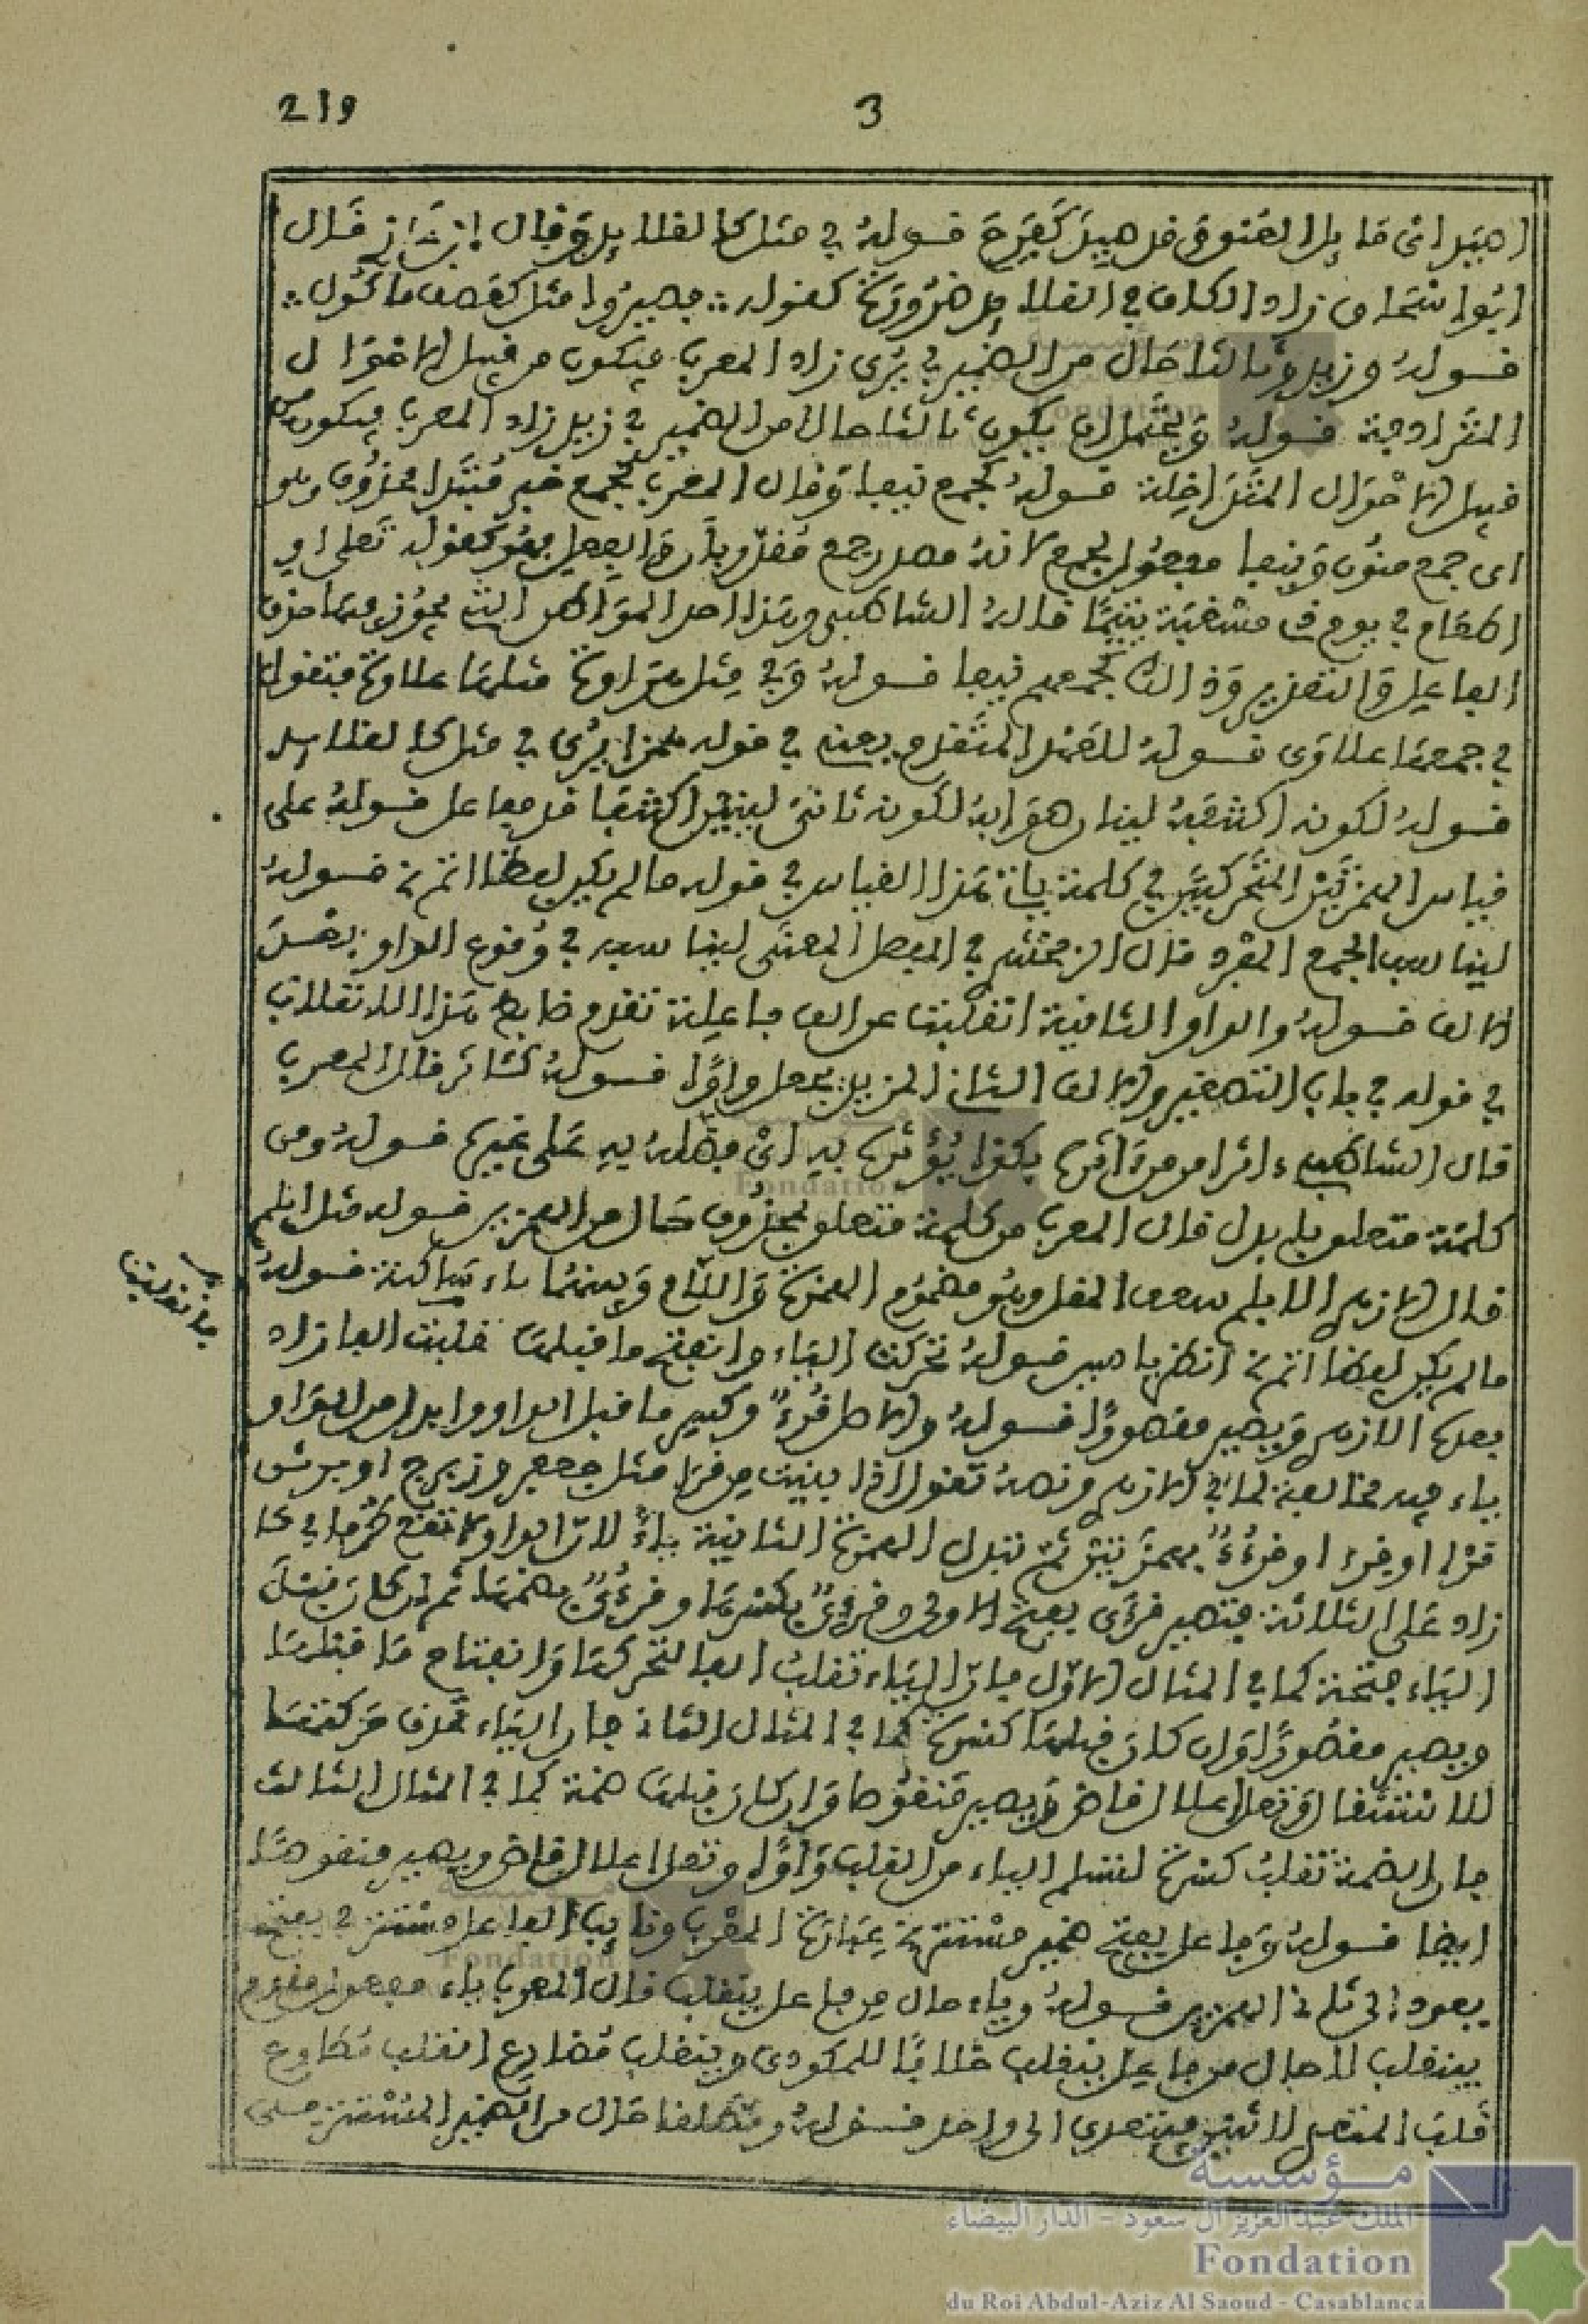 219
3
اهبد اي ما بل العنوق قوله في مثل كالقلا بل وقال ابن غازي قال
ابو اسحاق زاد الكاف في القلائد ضرورة كقوله :. فصيروا مثل كعصف ماكول :.
قوله وزيد وثالثا حال من الضمير في يرى زاد المعرب فيكون من قبيل الاحوال
المترادفة قوله ويحتمل ان يكون ثالثا حالا من الضمير في زيد زاد المعرب فيكون من
قبيل الاحوال المتداخلة قوله كجمع نيفا وقال المعرب كجمع خبر مبتدا محذوف وهو
اي جمع منون ونيفا مفعول لجمع لانه مصدر جمع مقدر بان والفعل فهو كقوله تعلى او
اطعام في يوم ذي مسغبة يتيما قاله الشاطبي وهذا احد المواطن التي يجوز فيها حذف
الفاعل والتقدير وذالك كجمعهم نيفا قوله وفي مثل هراوة مثلها علاوة فتقول
في جمعها علاوى قوله للهمز المتقدم يعني في قوله همزا يرى في مثل كالقلائد
قوله لكونه اكتنفه لينان صوابه لكونه ثاني لينين اكتنفا مد مفاعل قوله على
قياس الهمزتين المتحركتين في كلمة ياتي هذا القياس في قوله ما لم يكن لفظا اتم قوله
ليناسب الجمع المفرد قال الزمخشري في المفصل المعنى ليناسبه في وقوع الواو بعد
الالف قوله والواو الثانية انقلبت عن الف فاعلة تقدم ضابط هذا الانقلاب
في قوله في باب التصغير والالف الثان المزيد يجعل واوا قوله كشا ثر قال المعرب
قال الشاطبي ءاثرا من من اثرها بكذا يؤثرها به اي فضله به على غيرها قوله ومن
كلمة متعلق بابدل قال المعرب من كلمة متعلق بمحذوف حال من الهمزين قوله مثل ابلم
قال الازهري الابلم سعف المقل وهو مضموم الهمزة واللام وبينهما باء ساكنة قوله
ما لم يكن لفظا اتم انظر ياسين قوله تحركت الياء وانفتح ما قبلها قلبت الفا زاد
بعدها الازهري ويصير مقصورا قوله والاصل قرءء وكسر ما قبل الواو وابدل من الواو
ياء فيه مخالفة لما في الازهري ونصه تقول اذا بنيت من قرا مثل جعفر وزبرج او برثن
قرءا او قرءء او قرءء بهمزتين ثم تبدل الهمزة الثانية ياء لان الواو لا تقع طرفا فيما
زاد على الثلاثة فتصير قرءي بفتح الاولى وقرءي بكسرها وقرءي بضمها ثم ان كان قبل
الياء فتحة كما في المثال الاول فان الياء تقلب الفا لتحركها وانفتاح ما قبلها
ويصير مقصورا وان كان قبلها كسرة كما في المثال الثاني فان الياء تحذف حركتها
للاستثقال وتعل اعلال قاض ويصير منقوصا وان كان قبلها ضمة كما في المثال الثالث
فان الضمة تقلب كسرة لتسلم الياء من القلب واوا وتعل اعلال قاض ويصير منقوصا
ايضا قوله وفاعل يفتح ضمير مستتر عبارة المعرب ونايب الفاعل مستتر في يفتح
يعود الى ثاني الهمزين قوله وياء حال من فاعل ينقلب قال المعرب ياء مفعول مقدم
بينقلب لا حال من فاعل ينقلب خلافا للمكودي وينقلب مضارع انقلب مطاوع
قلب المتعدي لاثنين فيتعدى الى واحد قوله ومطلقا حال من الضمير المستتر على
مؤسسة
الملك عبد العزيز آل سعود - الدار البيضاء
Fondation
du Roi Abdul-Aziz Al Saoud - Casablanca